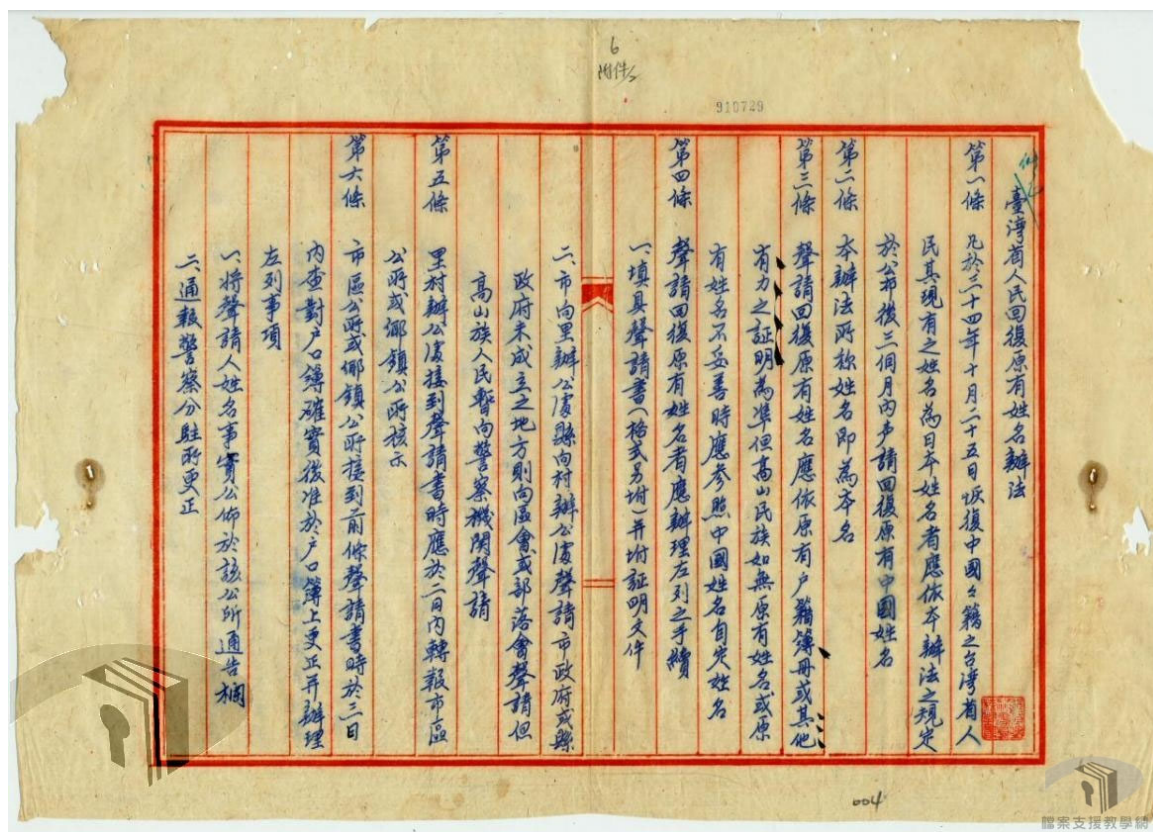 6
附件
910729
臺灣省人民回復原有姓名辦法
第一條 凡於三十四年十月二十五日恢復中國々籍之台灣省人
民其現有之姓名為日本姓名者應依本辦法之規定
於公布後三個月內声請回復原有中國姓名
第二條 本辦法所称姓名即為本名
第三條 聲請回復原有姓名應依原有户籍簿冊或其他
有力之証明為準但高山民族如無原有姓名或原
有姓名不妥善時應参照中國姓名自定姓名
第四條 聲請回復原有姓名者應辦理左列之手續
一、填具聲請書(格式另坿)并坿証明文件
二、市向里辦公處縣向村辦公處聲請市政府或縣
政府未成立之地方則向區會或部落會聲請但
高山族人民暫向警察機関聲請
第五條 里村辦公處接到聲請書時應於二日內轉報市區
公所或鄉鎮公所核示
第六條 市區公所或鄉鎮公所接到前條聲請書時於三日
內查對户口簿確實後准於户口簿上更正并辦理
左列事項
一、將聲請人姓名事實公佈於該公所通告欄
二、通報警察分駐所更正
004
檔案支援教學網